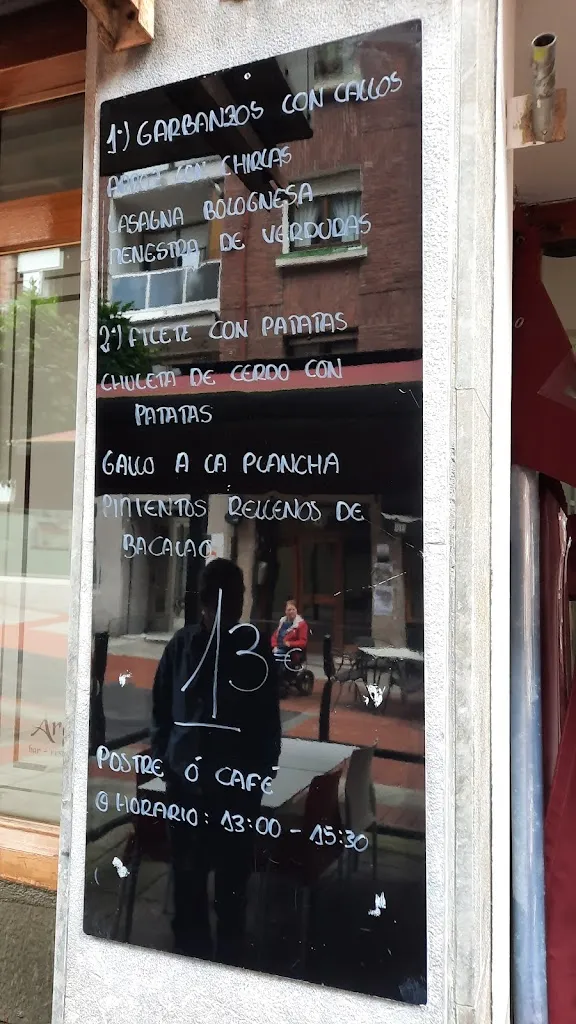 1º) GARBANZOS CON CALLOS
ARROZ CON CHIRLAS
LASAGNA BOLOGNESA
MENESTRA DE VERDURAS
2º) FILETE CON PATATAS
CHULETA DE CERDO CON
PATATAS
GALLO A LA PLANCHA
PIMIENTOS RELLENOS DE
BACALAO
13€
POSTRE Ó CAFÉ
@ HORARIO: 13:00 - 15:30